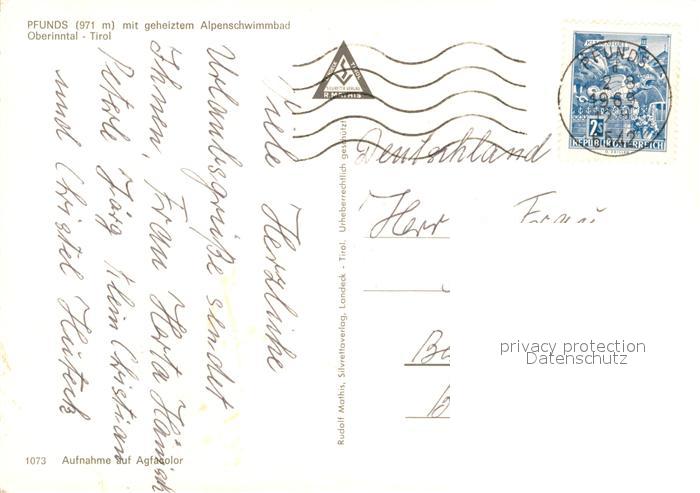 PFUNDS (971 m) mit geheiztem Alpenschwimmbad
Oberinntal - Tirol
Viele Herzliche
Urlaubsgrüße sendet
Ihnen, Frau Herta
Petra Jörg Klein Christian
und Christel
R. MATHIS
Rudolf Mathis, Silvrettaverlag, Landeck - Tirol. Urheberrechtlich geschützt!
PFUNDS
2S
REPUBLIK ÖSTERREICH
Deutschland
Herr Frau
privacy protection
Datenschutz
1073 Aufnahme auf Agfacolor